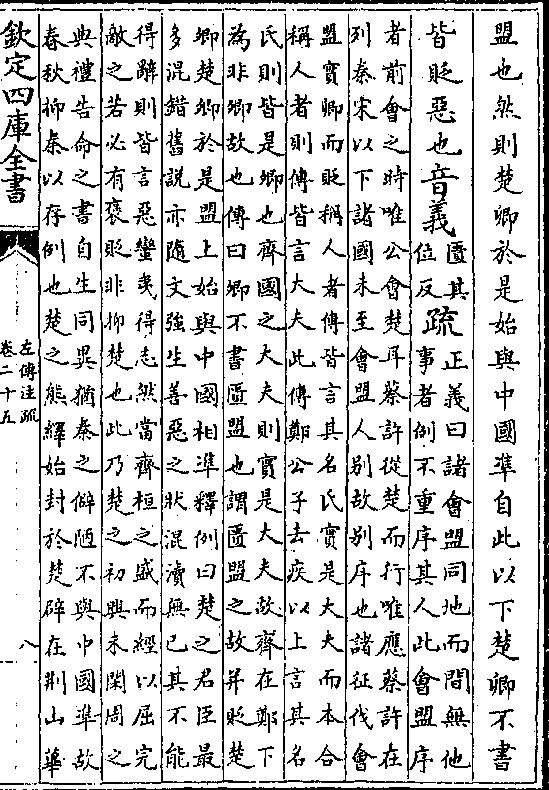 盟也然則楚卿於是始與中國準自此以下楚卿不書
皆貶惡也音義匱其位反疏正義曰諸會盟同地而間無他
事者例不重序其人此會盟序
者前會之時唯公會楚耳蔡許從楚而行唯應蔡許在
列秦宋以下諸國未至會盟人別故別序也諸征伐會
盟實卿而貶稱人者傳皆言其名氏實是大夫而本合
稱人者則傳皆言大夫此傳鄭公子去疾以上言其名
氏則皆是卿也齊國之大夫則實是大夫故齊在鄭下
為非卿故也傳曰卿不書匱盟也謂匱盟之故并貶楚
卿楚卿於是盟上始與中國相準釋例曰楚之君臣最
多混錯舊說亦隨文強生善惡之狀混瀆無已其不能
得辭則皆言惡蠻夷得志然當齊桓之盛而經以屈完
敵之若必有褒貶非抑楚也此乃楚之初興未閑周之
典禮告命之書自生同異猶秦之僻陋不與中國準故
春秋抑秦以存例也楚之熊繹始封於楚辟在荊山蓽
欽定四庫全書
左傳注疏
卷二十五
八